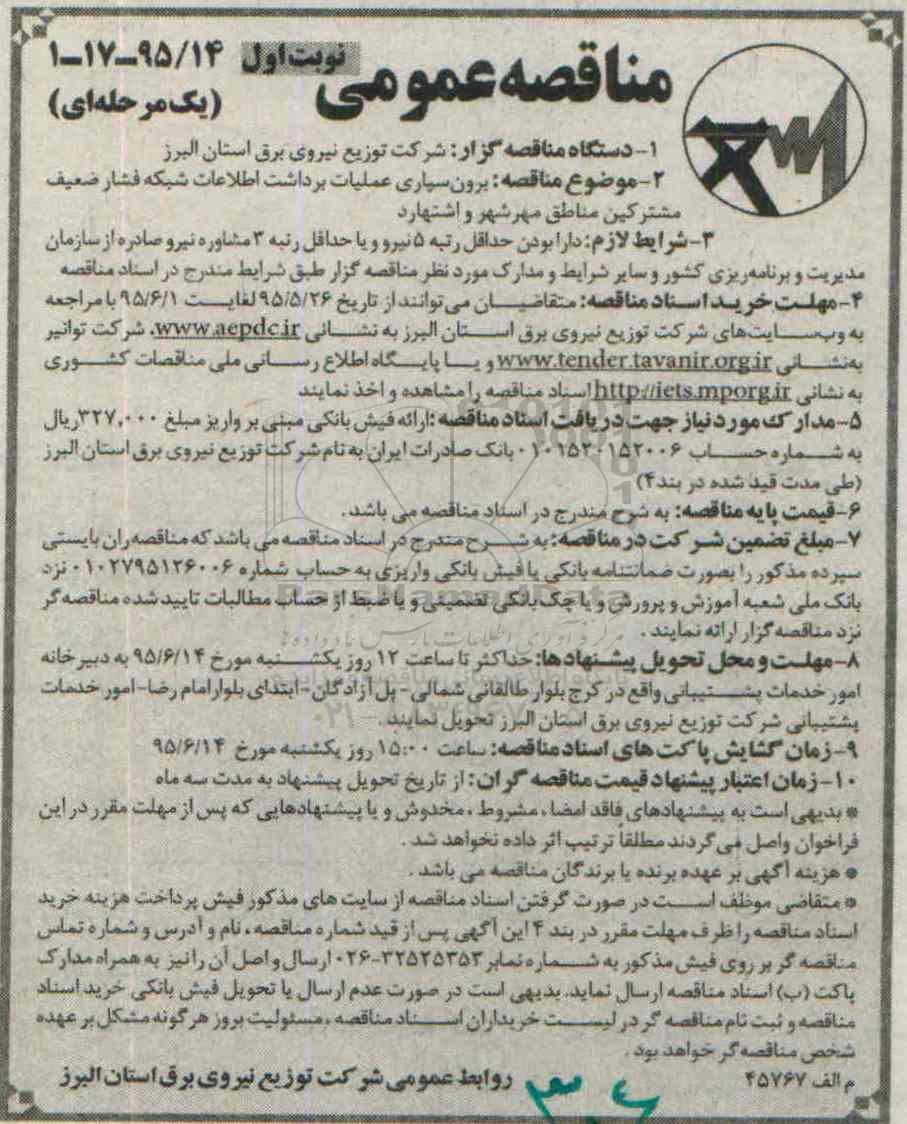 مناقصه عمومی نوبت اول ۹۵/۱۴-۱۷-۱
(یک مرحله‌ای)
۱-دستگاه مناقصه گزار: شرکت توزیع نیروی برق استان البرز
۲-موضوع مناقصه: برون‌سپاری عملیات برداشت اطلاعات شبکه فشار ضعیف
مشترکین مناطق مهرشهر و اشتهارد
۳-شرایط لازم: دارا بودن حداقل رتبه ۵ نیرو و یا حداقل رتبه ۳ مشاوره نیرو صادره از سازمان
مدیریت و برنامه‌ریزی کشور و سایر شرایط و مدارک مورد نظر مناقصه گزار طبق شرایط مندرج در اسناد مناقصه
۴-مهلت خرید اسناد مناقصه: متقاضیان می توانند از تاریخ ۹۵/۵/۲۶ لغایت ۹۵/۶/۱ با مراجعه
به وب‌سایت‌های شرکت توزیع نیروی برق استان البرز به نشانی www.aepdc.ir، شرکت توانیر
به‌نشانی www.tender.tavanir.org.ir و یا پایگاه اطلاع رسانی ملی مناقصات کشوری
به نشانی http://iets.mporg.ir اسناد مناقصه را مشاهده و اخذ نمایند
۵-مدارک مورد نیاز جهت دریافت اسناد مناقصه: ارائه فیش بانکی مبنی بر واریز مبلغ ۳۲۷,۰۰۰ ریال
به شماره حساب ۰۱۰۱۵۲۰۱۵۲۰۰۶ بانک صادرات ایران به نام شرکت توزیع نیروی برق استان البرز
(طی مدت قید شده در بند۴)
۶-قیمت پایه مناقصه: به شرح مندرج در اسناد مناقصه می باشد.
۷-مبلغ تضمین شرکت در مناقصه: به شرح مندرج در اسناد مناقصه می باشد که مناقصه‌ران بایستی
سپرده مذکور را بصورت ضمانتنامه بانکی یا فیش بانکی واریزی به حساب شماره ۰۱۰۲۷۹۵۱۲۶۰۰۶ نزد
بانک ملی شعبه آموزش و پرورش و یا چک بانکی تضمینی و یا ضبط از حساب مطالبات تایید شده مناقصه گر
نزد مناقصه گزار ارائه نمایند.
۸-مهلت و محل تحویل پیشنهادها: حداکثر تا ساعت ۱۲ روز یکشنبه مورخ ۹۵/۶/۱۴ به دبیرخانه
امور خدمات پشتیبانی واقع در کرج بلوار طالقانی شمالی- پل آزادگان-ابتدای بلوار امام رضا-امور خدمات
پشتیبانی شرکت توزیع نیروی برق استان البرز تحویل نمایند.
۹-زمان گشایش پاکت های اسناد مناقصه: ساعت ۱۵:۰۰ روز یکشنبه مورخ ۹۵/۶/۱۴
۱۰-زمان اعتبار پیشنهاد قیمت مناقصه گران: از تاریخ تحویل پیشنهاد به مدت سه ماه
* بدیهی است به پیشنهادهای فاقد امضا، مشروط، مخدوش و یا پیشنهادهایی که پس از مهلت مقرر در این
فراخوان واصل می گردند مطلقا ترتیب اثر داده نخواهد شد.
* هزینه آگهی بر عهده برنده یا برندگان مناقصه می باشد.
* متقاضی موظف است در صورت گرفتن اسناد مناقصه از سایت های مذکور فیش پرداخت هزینه خرید
اسناد مناقصه را ظرف مهلت مقرر در بند ۴ این آگهی پس از قید شماره مناقصه، نام و آدرس و شماره تماس
مناقصه گر بر روی فیش مذکور به شماره نمابر ۳۲۵۲۵۳۵۳-۰۲۶ ارسال و اصل آن را نیز به همراه مدارک
پاکت (ب) اسناد مناقصه ارسال نماید. بدیهی است در صورت عدم ارسال یا تحویل فیش بانکی خرید اسناد
مناقصه و ثبت نام مناقصه گر در لیست خریداران اسناد مناقصه، مسئولیت بروز هرگونه مشکل بر عهده
شخص مناقصه گر خواهد بود.
م الف ۴۵۷۶۷ روابط عمومی شرکت توزیع نیروی برق استان البرز